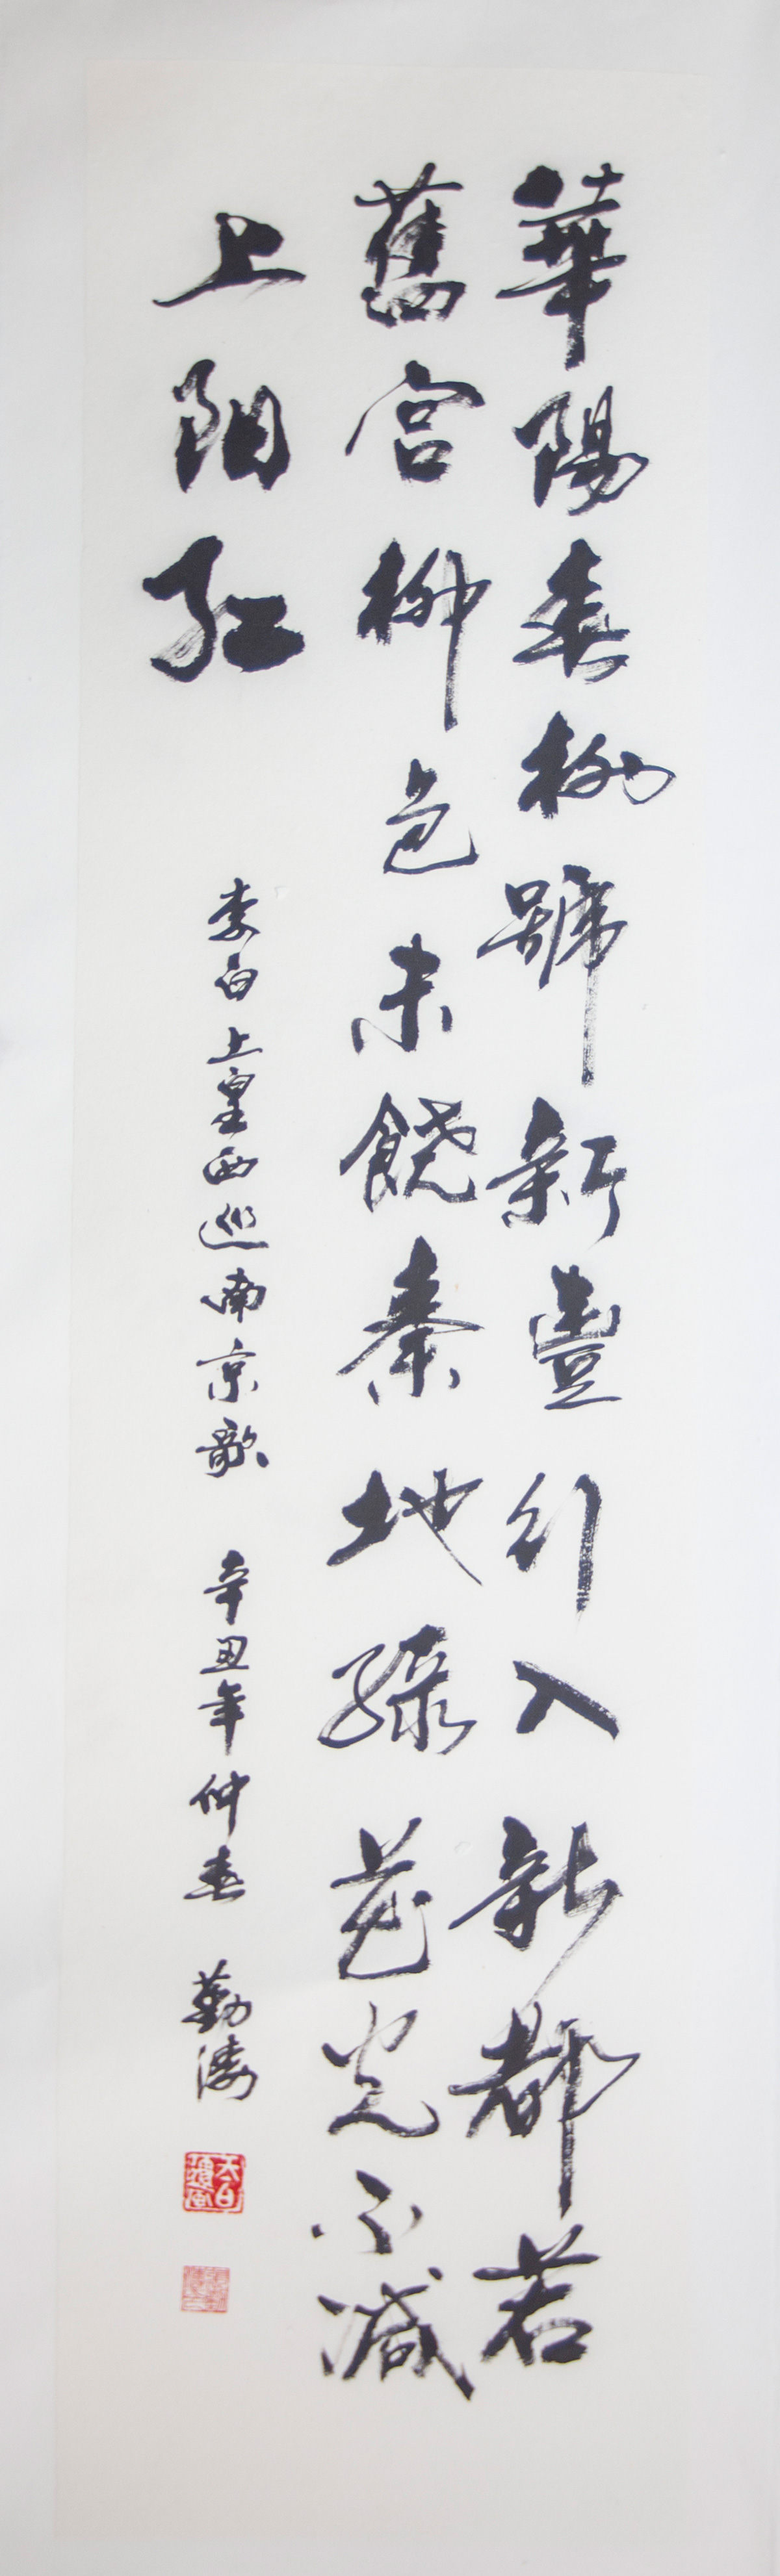 華陽春树號新豐行入新都若
舊宮柳色未饒秦地綠花光不減
上阳紅
李白上皇西巡南京歌 辛丑年仲春 勤濤
太白遺風